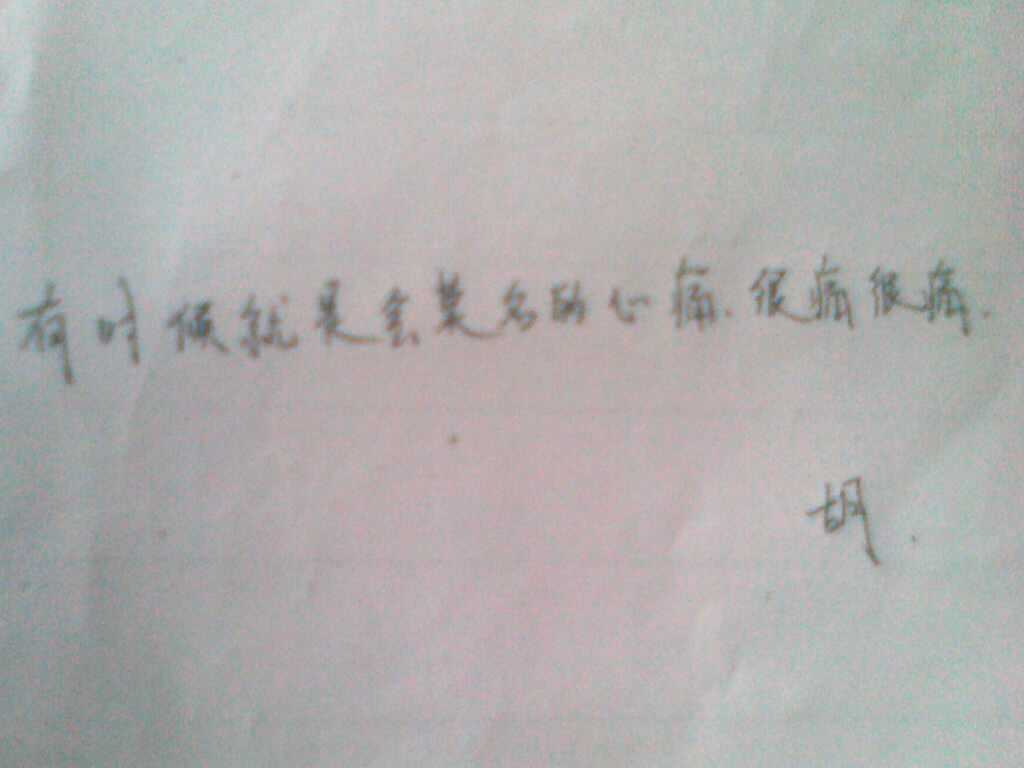 有时候就是会莫名的心痛.很痛很痛.
胡.